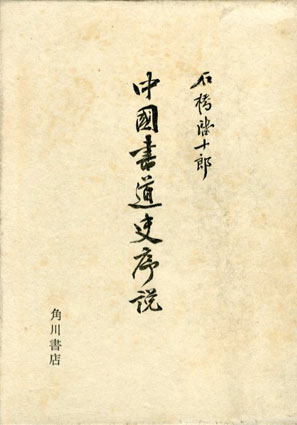 石橋啓十郎
中國書道史序説
角川書店